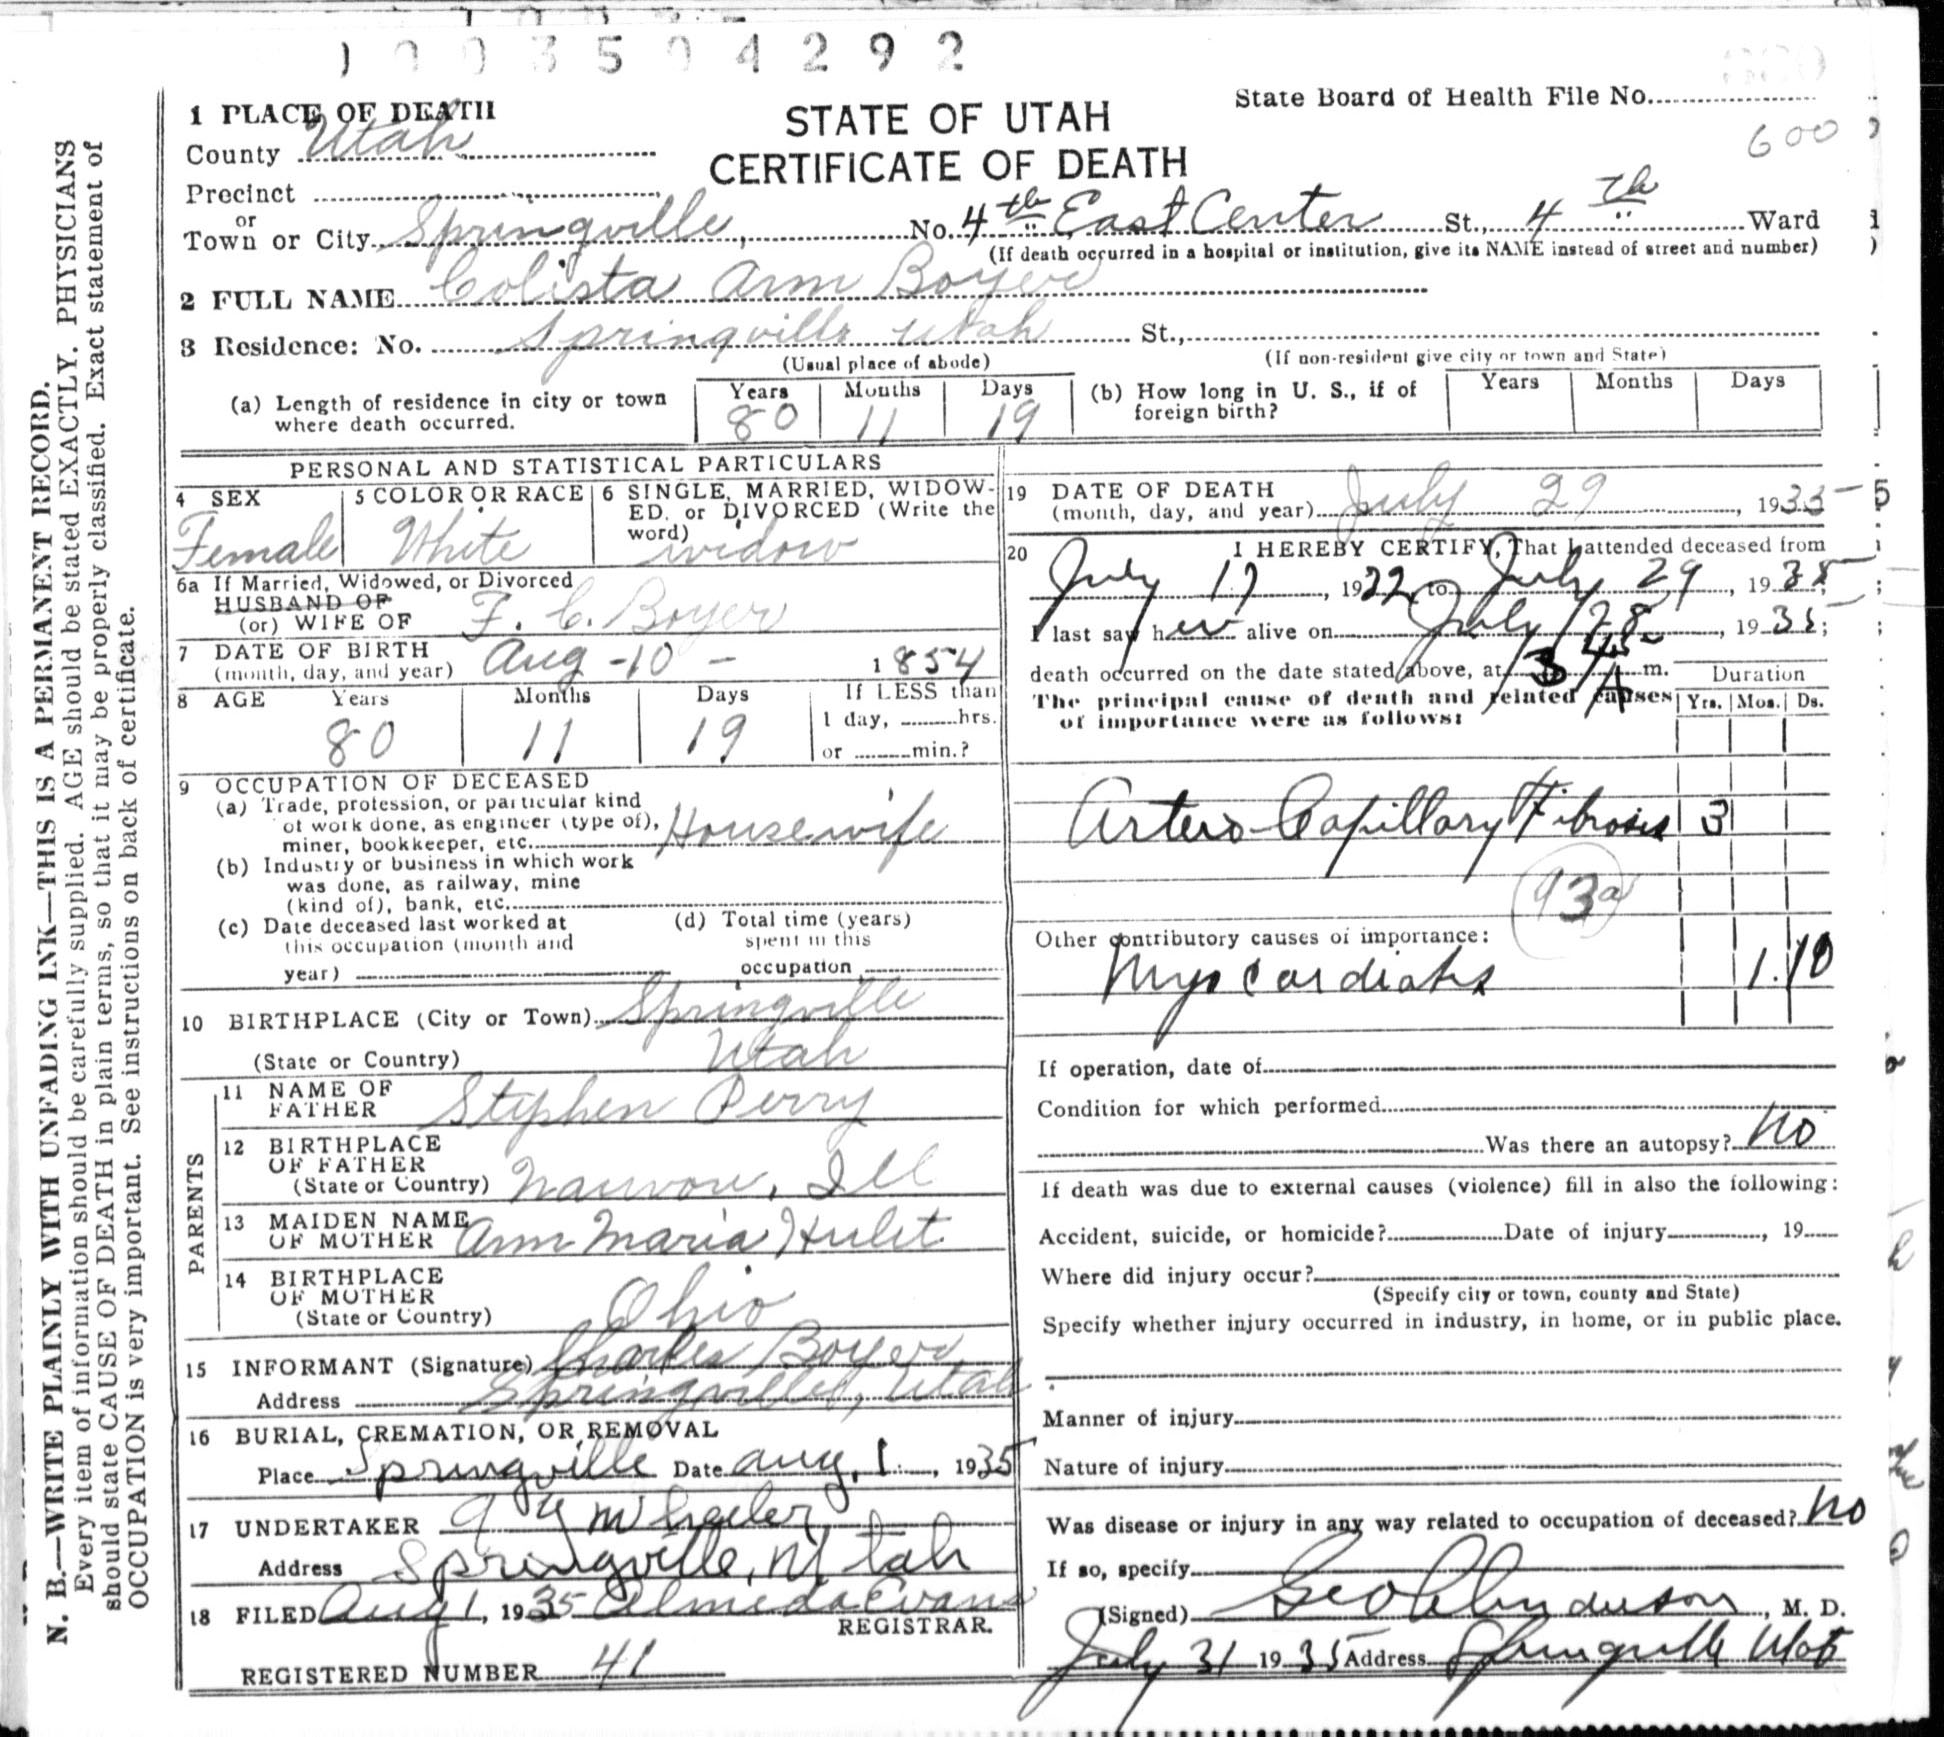 1003504292
1 PLACE OF DEATH
STATE OF UTAH
CERTIFICATE OF DEATH
State Board of Health File No.
600
County Utah
Precinct
or
Town or City Springville, No. 4th East Center St., 4th Ward
(If death occurred in a hospital or institution, give its NAME instead of street and number)
2 FULL NAME Colista Ann Boyer
3 Residence: No. Springville Utah St.,
(Usual place of abode) (If non-resident give city or town and State)
(a) Length of residence in city or town where death occurred. Years 80 Months 11 Days 19
(b) How long in U. S., if of foreign birth? Years Months Days
PERSONAL AND STATISTICAL PARTICULARS
4 SEX Female
5 COLOR OR RACE White
6 SINGLE, MARRIED, WIDOW-
ED, or DIVORCED (Write the
word) widow
6a If Married, Widowed, or Divorced
HUSBAND OF
(or) WIFE OF F. C. Boyer
7 DATE OF BIRTH
(month, day, and year) Aug - 10 - 1854
8 AGE Years 80 Months 11 Days 19
If LESS than
1 day, hrs.
or min.?
9 OCCUPATION OF DECEASED
(a) Trade, profession, or particular kind
of work done, as engineer (type of),
miner, bookkeeper, etc. Housewife
(b) Industry or business in which work
was done, as railway, mine
(kind of), bank, etc.
(c) Date deceased last worked at
this occupation (month and
year)
(d) Total time (years)
spent in this
occupation
10 BIRTHPLACE (City or Town) Springville
(State or Country) Utah
PARENTS
11 NAME OF
FATHER Stephen Perry
12 BIRTHPLACE
OF FATHER
(State or Country) Nauvoo, Ill
13 MAIDEN NAME
OF MOTHER Ann Maria Hulet
14 BIRTHPLACE
OF MOTHER
(State or Country) Ohio
15 INFORMANT (Signature) Charles Boyer
Address Springville, Utah
16 BURIAL, CREMATION, OR REMOVAL
Place Springville Date Aug. 1, 1935
17 UNDERTAKER Wheeler
Address Springville, Utah
18 FILED Aug 1, 1935 Almeda Evans
REGISTRAR.
REGISTERED NUMBER 41
19 DATE OF DEATH
(month, day, and year) July 29, 1935 - 5
20 I HEREBY CERTIFY, That I attended deceased from
July 17, 1922 to July 29, 1935;
I last saw her alive on July 28, 1935;
death occurred on the date stated above, at 3 45 A m.
The principal cause of death and related causes
of importance were as follows:
Duration
Yrs. Mos. Ds.
Arterio Capillary Fibrosis 3
93a
Other contributory causes of importance:
Myocardiatis 1. 10
If operation, date of
Condition for which performed
Was there an autopsy? No
If death was due to external causes (violence) fill in also the following:
Accident, suicide, or homicide? Date of injury, 19
Where did injury occur?
(Specify city or town, county and State)
Specify whether injury occurred in industry, in home, or in public place.
Manner of injury
Nature of injury
Was disease or injury in any way related to occupation of deceased? No
If so, specify
(Signed) Geo Anderson, M. D.
July 31 1935 Address Springville Utah
N. B.—WRITE PLAINLY WITH UNFADING INK—THIS IS A PERMANENT RECORD.
Every item of information should be carefully supplied. AGE should be stated EXACTLY. PHYSICIANS
should state CAUSE OF DEATH in plain terms, so that it may be properly classified. Exact statement of
OCCUPATION is very important. See instructions on back of certificate.